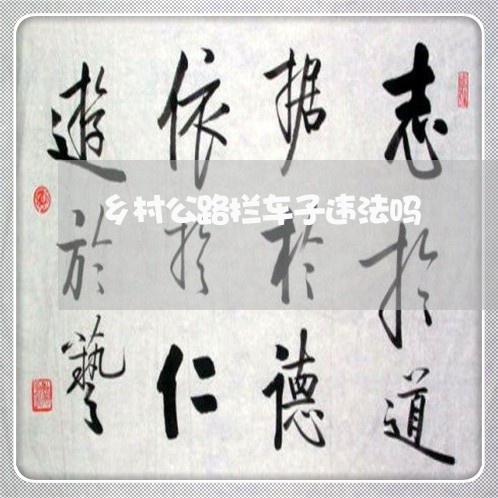 志於道
据於德
依於仁
遊於藝
乡村公路拦车子违法吗